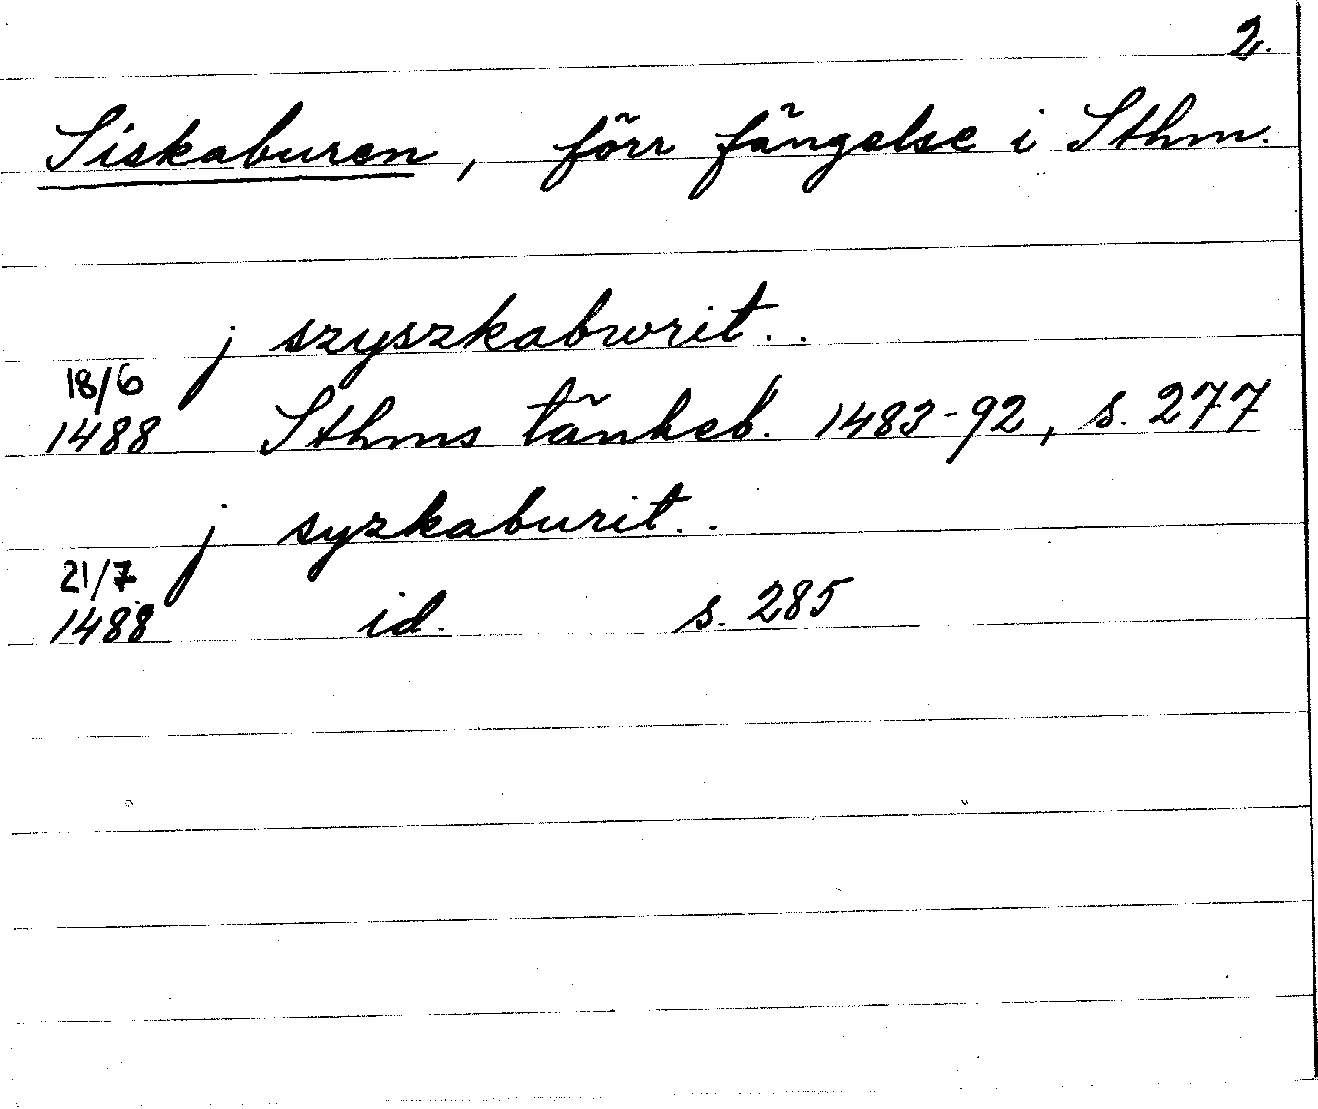 2.
Siskaburen, förr fängelse i Sthm.
j szyszkabwrit..
18/6
1488 Sthms tänkeb. 1483-92, s. 277
j syzkaburit..
21/7
1488 id. s. 285